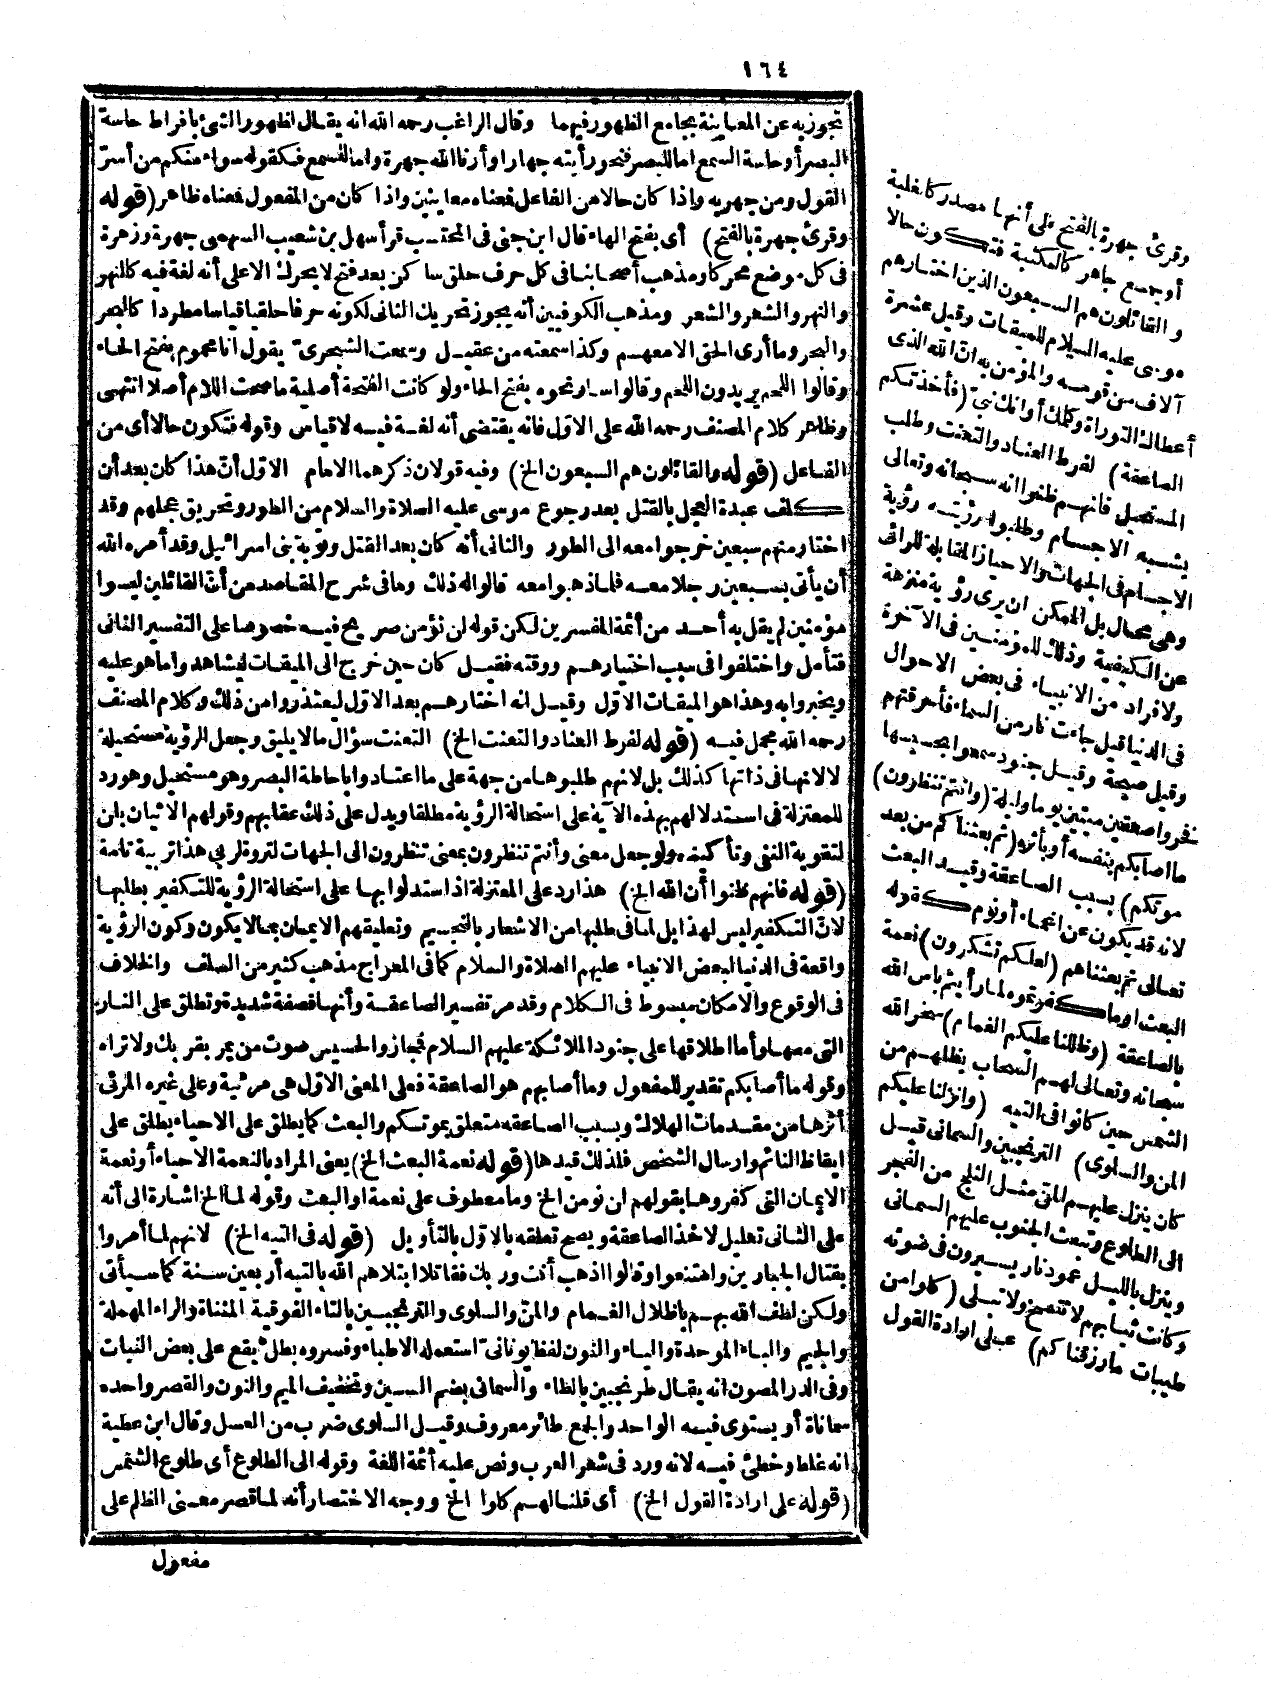 ١٦٤
تجوز به عن المعاينة بجامع الظهور فيهما وقال الراغب رحمه الله انه يقال لظهور الشئ بافراط حاسة
البصر أو حاسة السمع اما البصر فنحو رأيته جهارا وأرنا الله جهرة واما السمع فكقوله سواء منكم من أسر
القول ومن جهر به واذا كان حالا من الفاعل فمعناه معاينين واذا كان من المفعول فمعناه ظاهر (قوله
وقرئ جهرة بالفتح) أى بفتح الهاء قال ابن جنى فى المحتسب قرأ سهل بن شعيب السهمى جهرة وزهرة
فى كل موضع محركا ومذهب أصحابنا فى كل حرف حلق ساكن بعد فتح لا يحرك الا على أنه لغة فيه كالنهر
والنهر والشعر والشعر ومذهب الكوفيين أنه يجوز تحريك الثانى لكونه حرفا حلقيا قياسا مطردا كالبحر
والبحر وما أرى الحق الا معهم وكذا سمعته من عقيل وسمعت الشجرى يقول انا محموم بفتح الحاء
وقالوا اللحم يريدون اللحم وقالوا سار نحوه بفتح الحاء ولو كانت الفتحة أصلية ما صحت اللام أصلا انتهى
وظاهر كلام المصنف رحمه الله على الاول فانه يقتضى أنه لغة فيه لا قياس وقوله فتكون حالا أى من
الفاعل (قوله والقائلون هم السبعون الخ) وفيه قولان ذكرهما الامام الاول أن هذا كان بعد أن
كلف عبدة العجل بالقتل بعد رجوع موسى عليه الصلاة والسلام من الطور وتحريق عجلهم وقد
اختار منهم سبعين خرجوا معه الى الطور والثانى أنه كان بعد القتل وتوبة بنى اسرائيل وقد أمره الله
أن يأتى بسبعين رجلا معه فلما ذهبوا معه قالوا له ذلك وما فى شرح المقاصد من أن القائلين ليسوا
مؤمنين لم يقل به أحد من أئمة المفسرين لكن قوله لن نؤمن صريح فيه خصوصا على التفسير الثانى
فتأمل واختلفوا فى سبب اختيارهم ووقته فقيل كان حين خرج الى الميقات ليشاهدوا ما هو عليه
ويخبروا به وهذا هو الميقات الاول وقيل انه اختارهم بعد الاول ليعتذروا من ذلك وكلام المصنف
رحمه الله مجمل فيه (قوله لفرط العناد والتعنت الخ) التعنت سؤال ما لا يليق وجعل الرؤية مستحيلة
لا لانها فى ذاتها كذلك بل لانهم طلبوها من جهة على ما اعتادوا باحاطة البصر وهو مستحيل وهو رد
للمعتزلة فى استدلالهم بهذه الآية على استحالة الرؤية مطلقا ويدل على ذلك عقابهم وقولهم الاتيان بلن
لتقوية النفى وتأكيده ولو جعل معنى وأنتم تنظرون بمعنى تنظرون الى الجهات لتروه لربى هذا تربية تامة
(قوله فانهم ظنوا أن الله الخ) هذا رد على المعتزلة اذ استدلوا بها على استحالة الرؤية للتكفير بطلبها
لان التكفير ليس لهذا بل لما فى طلبها من الاشعار بالتجسيم وتعليقهم الايمان بما لا يكون وكون الرؤية
واقعة فى الدنيا لبعض الانبياء عليهم الصلاة والسلام كما فى المعراج مذهب كثير من السلف والخلاف
فى الوقوع والامكان مبسوط فى الكلام وقد مر تفسير الصاعقة وأنها قصفة شديدة وتطلق على النار
التى معها وأما اطلاقها على جنود الملائكة عليهم السلام فمجاز والحسيس صوت من يمر بقربك ولا تراه
وقوله ما أصابكم تقدير للمفعول وما أصابهم هو الصاعقة فعلى المعنى الاول هى مرئية وعلى غيره المرئى
أثرها من مقدمات الهلاك وبسبب الصاعقة متعلق بموتكم والبعث كما يطلق على الاحياء يطلق على
ايقاظ النائم وارسال الشخص فلذلك قيدها (قوله نعمة البعث الخ) يعنى المراد بالنعمة الاحياء أو نعمة
الايمان التى كفروها بقولهم لن نؤمن الخ وما معطوف على نعمة او البعث وقوله لما الخ اشارة الى أنه
على الثانى تعليل لاخذ الصاعقة ويصح تعلقه بالاول بالتأويل (قوله فى التيه الخ) لانهم لما أمروا
بقتال الجبارين وامتنعوا وقالوا اذهب أنت وربك فقاتلا ابتلاهم الله بالتيه أربعين سنة كما سيأتى
ولكن لطف الله بهم باظلال الغمام والمن والسلوى والترنجبين بالتاء الفوقية المثناة والراء المهملة
والجيم والباء الموحدة والياء والنون لفظ يونانى استعمله الاطباء وفسروه بطل يقع على بعض النبات
وفى الدر المصون انه يقال طرنجبين بالطاء والسمانى بضم السين وتخفيف الميم والنون والقصر واحده
سماناة أو يستوى فيه الواحد والجمع طائر معروف وقيل السلوى ضرب من العسل وقال ابن عطية
انه غلط وخطئ فيه لانه ورد فى شعر العرب ونص عليه أئمة اللغة وقوله الى الطلوع أى طلوع الشمس
(قوله على ارادة القول الخ) أى قلنا لهم كلوا الخ ووجه الاختصار أنه لما قصر معنى الظلم على
مفعول
وقرئ جهرة بالفتح على أنها مصدر كالغلبة
أو جمع جاهر كالكتبة فتكون حالا
والقائلون هم السبعون الذين اختارهم
موسى عليه السلام للميقات وقيل عشرة
آلاف من قومه والمؤمن به ان الله الذى
أعطاك التوراة وكلمك أو انك نبى (فأخذتكم
الصاعقة) لفرط العناد والتعنت وطلب
المستحيل فانهم ظنوا انه سبحانه وتعالى
يشبه الاجسام وطلبوا رؤيته رؤية
الاجسام فى الجهات والاحياز المقابلة للرائى
وهى محال بل الممكن ان يرى رؤية منزهة
عن الكيفية وذلك للمؤمنين فى الآخرة
ولافراد من الانبياء فى بعض الاحوال
فى الدنيا قيل جاءت نار من السماء فأحرقتهم
وقيل صيحة وقيل جنود سمعوا بحسيسها
فخروا صعقين ميتين يوما وليلة (وانتم تنظرون)
ما اصابكم بنفسه أو بأثره (ثم بعثناكم من بعد
موتكم) بسبب الصاعقة وقيد البعث
لانه قد يكون عن اغماء أو نوم كقوله
تعالى ثم بعثناهم (لعلكم تشكرون) نعمة
البعث او ما كفرتموه لما رأيتم باس الله
بالصاعقة (وظللنا عليكم الغمام) سخر الله
سبحانه وتعالى لهم السحاب يظلهم من
الشمس حين كانوا فى التيه (وانزلنا عليكم
المن والسلوى) الترنجبين والسمانى قيل
كان ينزل عليهم المن مثل الثلج من الفجر
الى الطلوع وتبعث الجنوب عليهم السمانى
وينزل بالليل عمود نار يسيرون فى ضوئه
وكانت ثيابهم لا تتسخ ولا تبلى (كلوا من
طيبات ما رزقناكم) على ارادة القول